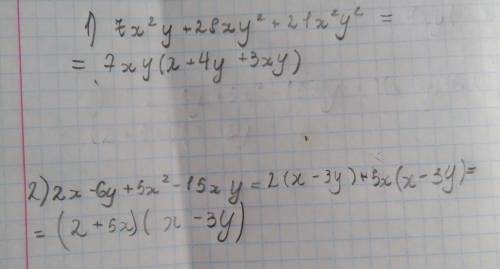 1) 7x²y + 28xy² + 21x²y² =
= 7xy(x + 4y + 3xy)
2) 2x - 6y + 5x² - 15xy = 2(x - 3y) + 5x(x - 3y) =
= (2 + 5x)(x - 3y)